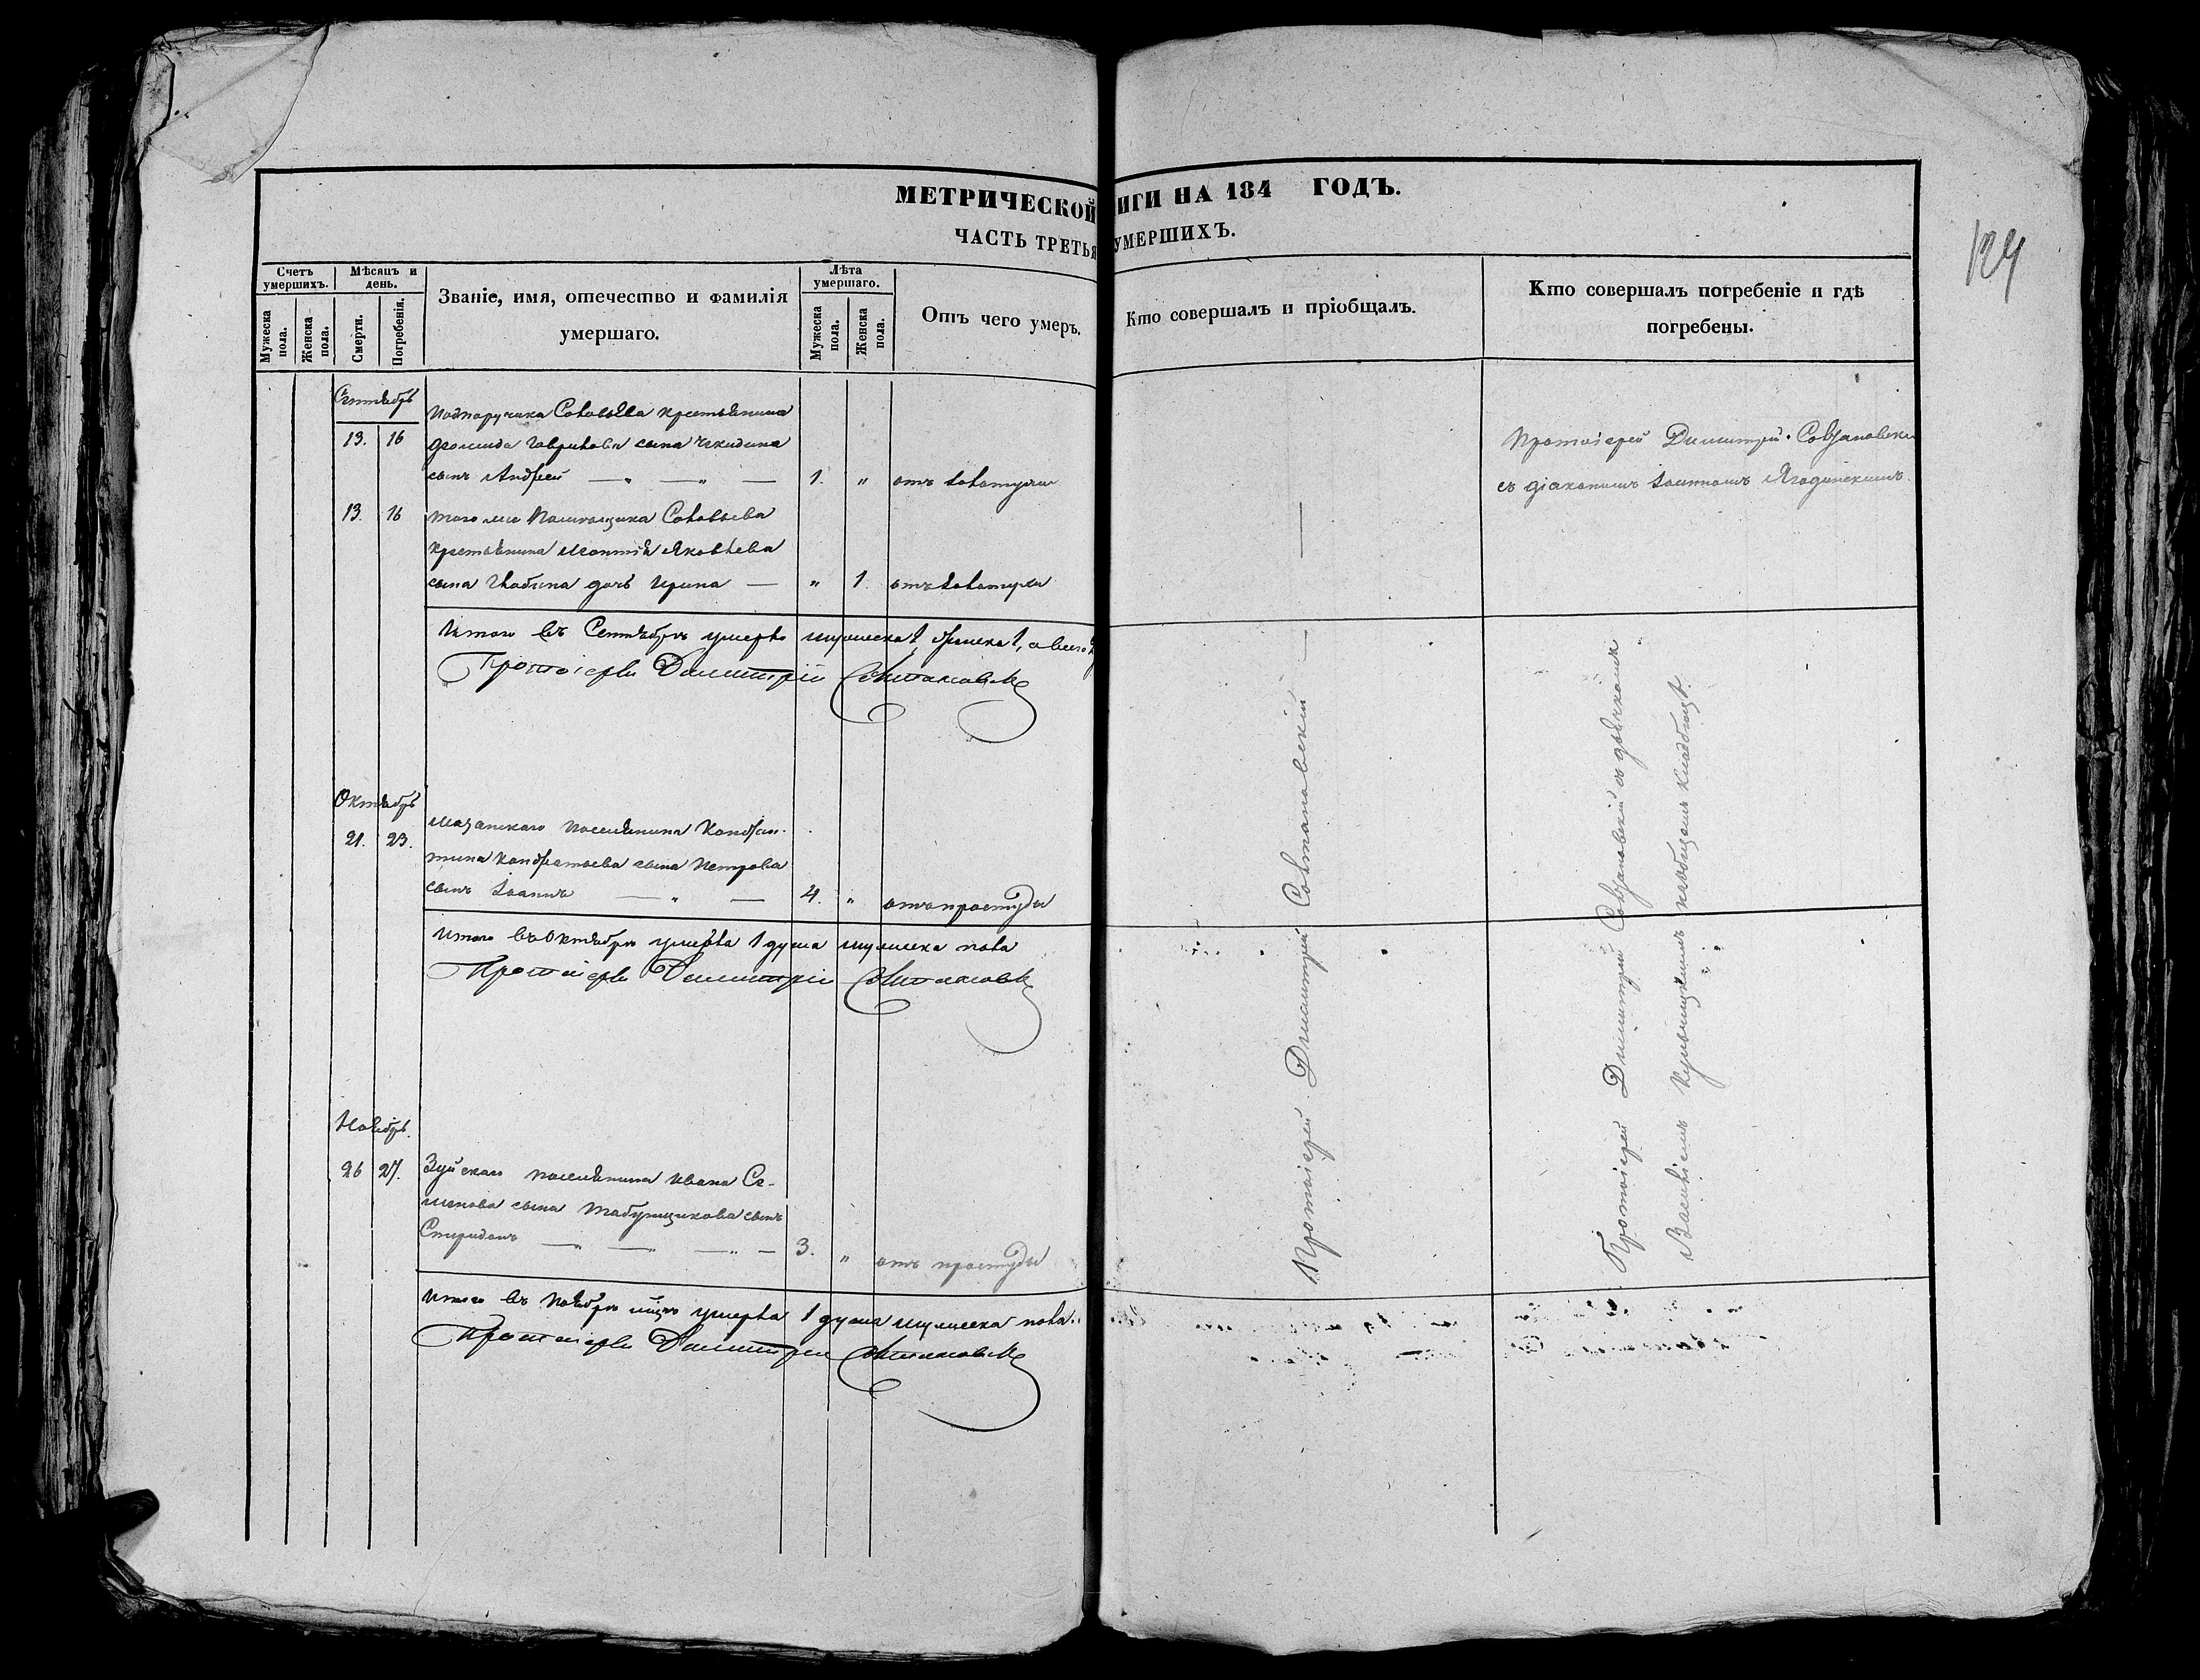 МЕТРИЧЕСКОЙ ИГИ НА 184 ГОДЪ.
ЧАСТЬ ТРЕТЬЯ УМЕРШИХЪ.
124
Счетъ умершихъ.
Мужеска пола.
Женска пола.
Мѣсяцъ и день.
Смерти.
Погребенія.
Званіе, имя, отечество и фамилія умершаго.
Лѣта умершаго.
Мужеска пола.
Женска пола.
Отъ чего умеръ.
Кто совершалъ и пріобщалъ.
Кто совершалъ погребеніе и гдѣ погребены.
Сентябрь
Подпоручика Соловьева крестьянина
13. 16 Гаврилова сына
сынъ Андрей — „ — „ — 1. „ отъ золотухи
Протоіерей Димитрій
съ діакономъ Іоанномъ Ягодинскимъ
13. 16 того же Помѣщика Соловьева
крестьянина Яковлева
сына дочь Ирина — „ 1. отъ золотухи
Итого въ Сентябрѣ умерло мужеска 1, женска 1, а всего
Протоіерей Димитрій
Октябрь
21. 23. поселянина
Кондратьева сына Петрова
сынъ Іоаннъ — „ — 4. „ отъ простуды
Итого въ Октябрѣ умерла 1 душа мужеска пола
Протоіерей Димитрій
Ноябрь.
26 27. Зуйскаго поселянина Ивана Се-
менова сына Табунщикова сынъ
Спиридонъ — „ — „ — „ — 3. „ отъ простуды
Итого въ Ноябрѣ мцѣ умерла 1 душа мужеска пола.
Протоіерей Димитрій
Протоіерей Димитрій
Протоіерей Димитрій съ дьячкомъ
Василіемъ на общемъ кладбищѣ.